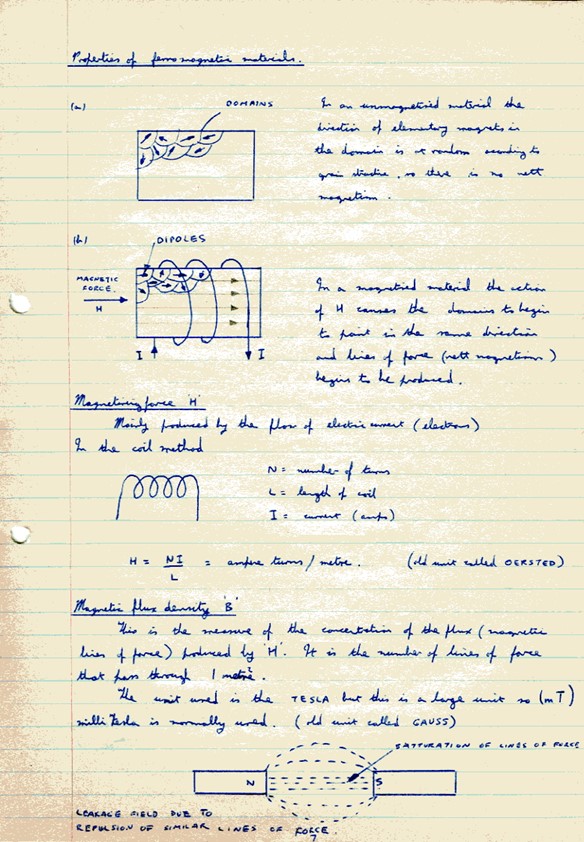 Properties of ferromagnetic materials.
(a)
DOMAINS
In an unmagnetised material the
direction of elementary magnets in
the domain is at random according to
grain structure, so there is no nett
magnetism.
(b)
DIPOLES
MAGNETIC
FORCE.
H
I
I
In a magnetised material the action
of H causes the domains to begin
to point in the same direction
and lines of force (nett magnetism)
begins to be produced.
Magnetising force 'H'
Mainly produced by the flow of electric current (electrons)
In the coil method
N = number of turns
L = length of coil
I = current (amps)
H = NI = ampere turns/metre. (old unit called OERSTED)
L
Magnetic flux density 'B'
This is the measure of the concentration of the flux (magnetic
lines of force) produced by 'H'. It is the number of lines of force
that pass through 1 metre².
The unit used is the TESLA but this is a large unit so (mT)
milli Tesla is normally used. (old unit called GAUSS)
SATTURATION OF LINES OF FORCE
N
S
LEAKAGE FIELD DUE TO
REPULSION OF SIMILAR LINES OF FORCE.
7